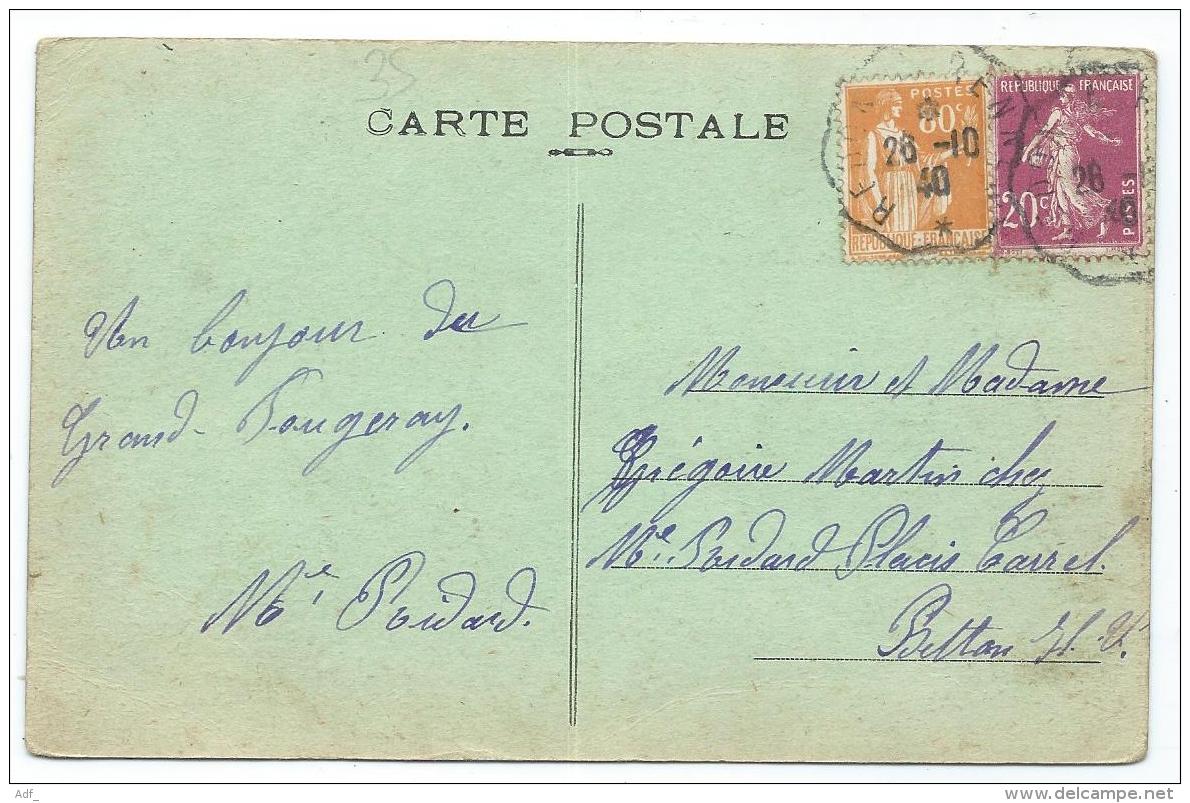 25
CARTE POSTALE
POSTES
80c
REPUBLIQUE-FRANÇAISE
REPUBLIQUE FRANÇAISE
20c
POSTES
REDON
RENNES
26 -10
40
26
40
Un bonjour du
Grand-Fougeray.
Me Poidard.
Monsieur et Madame
Grégoire Martin chez
Me Poidard Placis Carrel.
Betton Il. V.
Adf_
www.delcampe.net